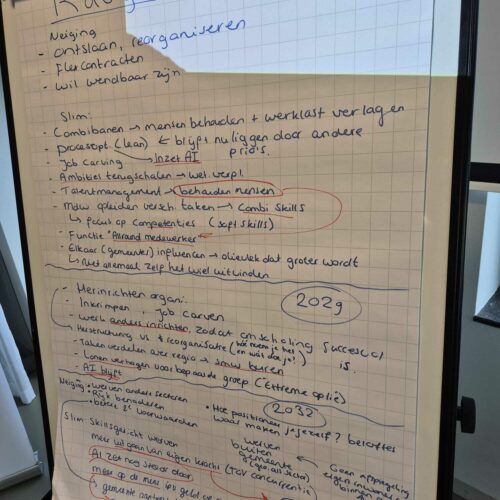 Neiging
- ontslaan, reorganiseren
- Flexcontracten
- wil wendbaar zijn
Slim:
- Combibanen → mensen behouden + werklast verlagen
- procesopt. (lean) ← blijft nu liggen door andere prio's.
- Job carving → Inzet AI
- Ambitie terugschalen → wet. verpl.
- Talentmanagement → behouden mensen
- Mdw opleiden versch. taken → Combi skills
↳ focus op competenties (soft skills)
- Functie "Allround medewerker"
- Elkaar (gemeenten) influencen → olievlek dat groter wordt
↳ Niet allemaal zelf het wiel uitvinden
2029
- Herinrichten organi.
- Inkrimpen, Job carven
- werk anders inrichten, zodat omscholing succesvol is.
↳ Herstructuring vs reorganisatie (hoe noem je het en wat doe je?)
- Taken verdelen over regio → samw buren
- Lonen verhogen voor bepaalde groep (extreme optie)
- AI blijft
2032
Neiging: • werven andere sectoren
• Rijk benaderen
• betere voorwaarden
• Hoe positioneer je jezelf? beloftes waar maken
Slim: Skillsgericht werven
meer uitgaan van eigen kracht (TOV concurrentie)
AI zet nog steeds door
werven buiten gemeente
Geen
eigen inwoners